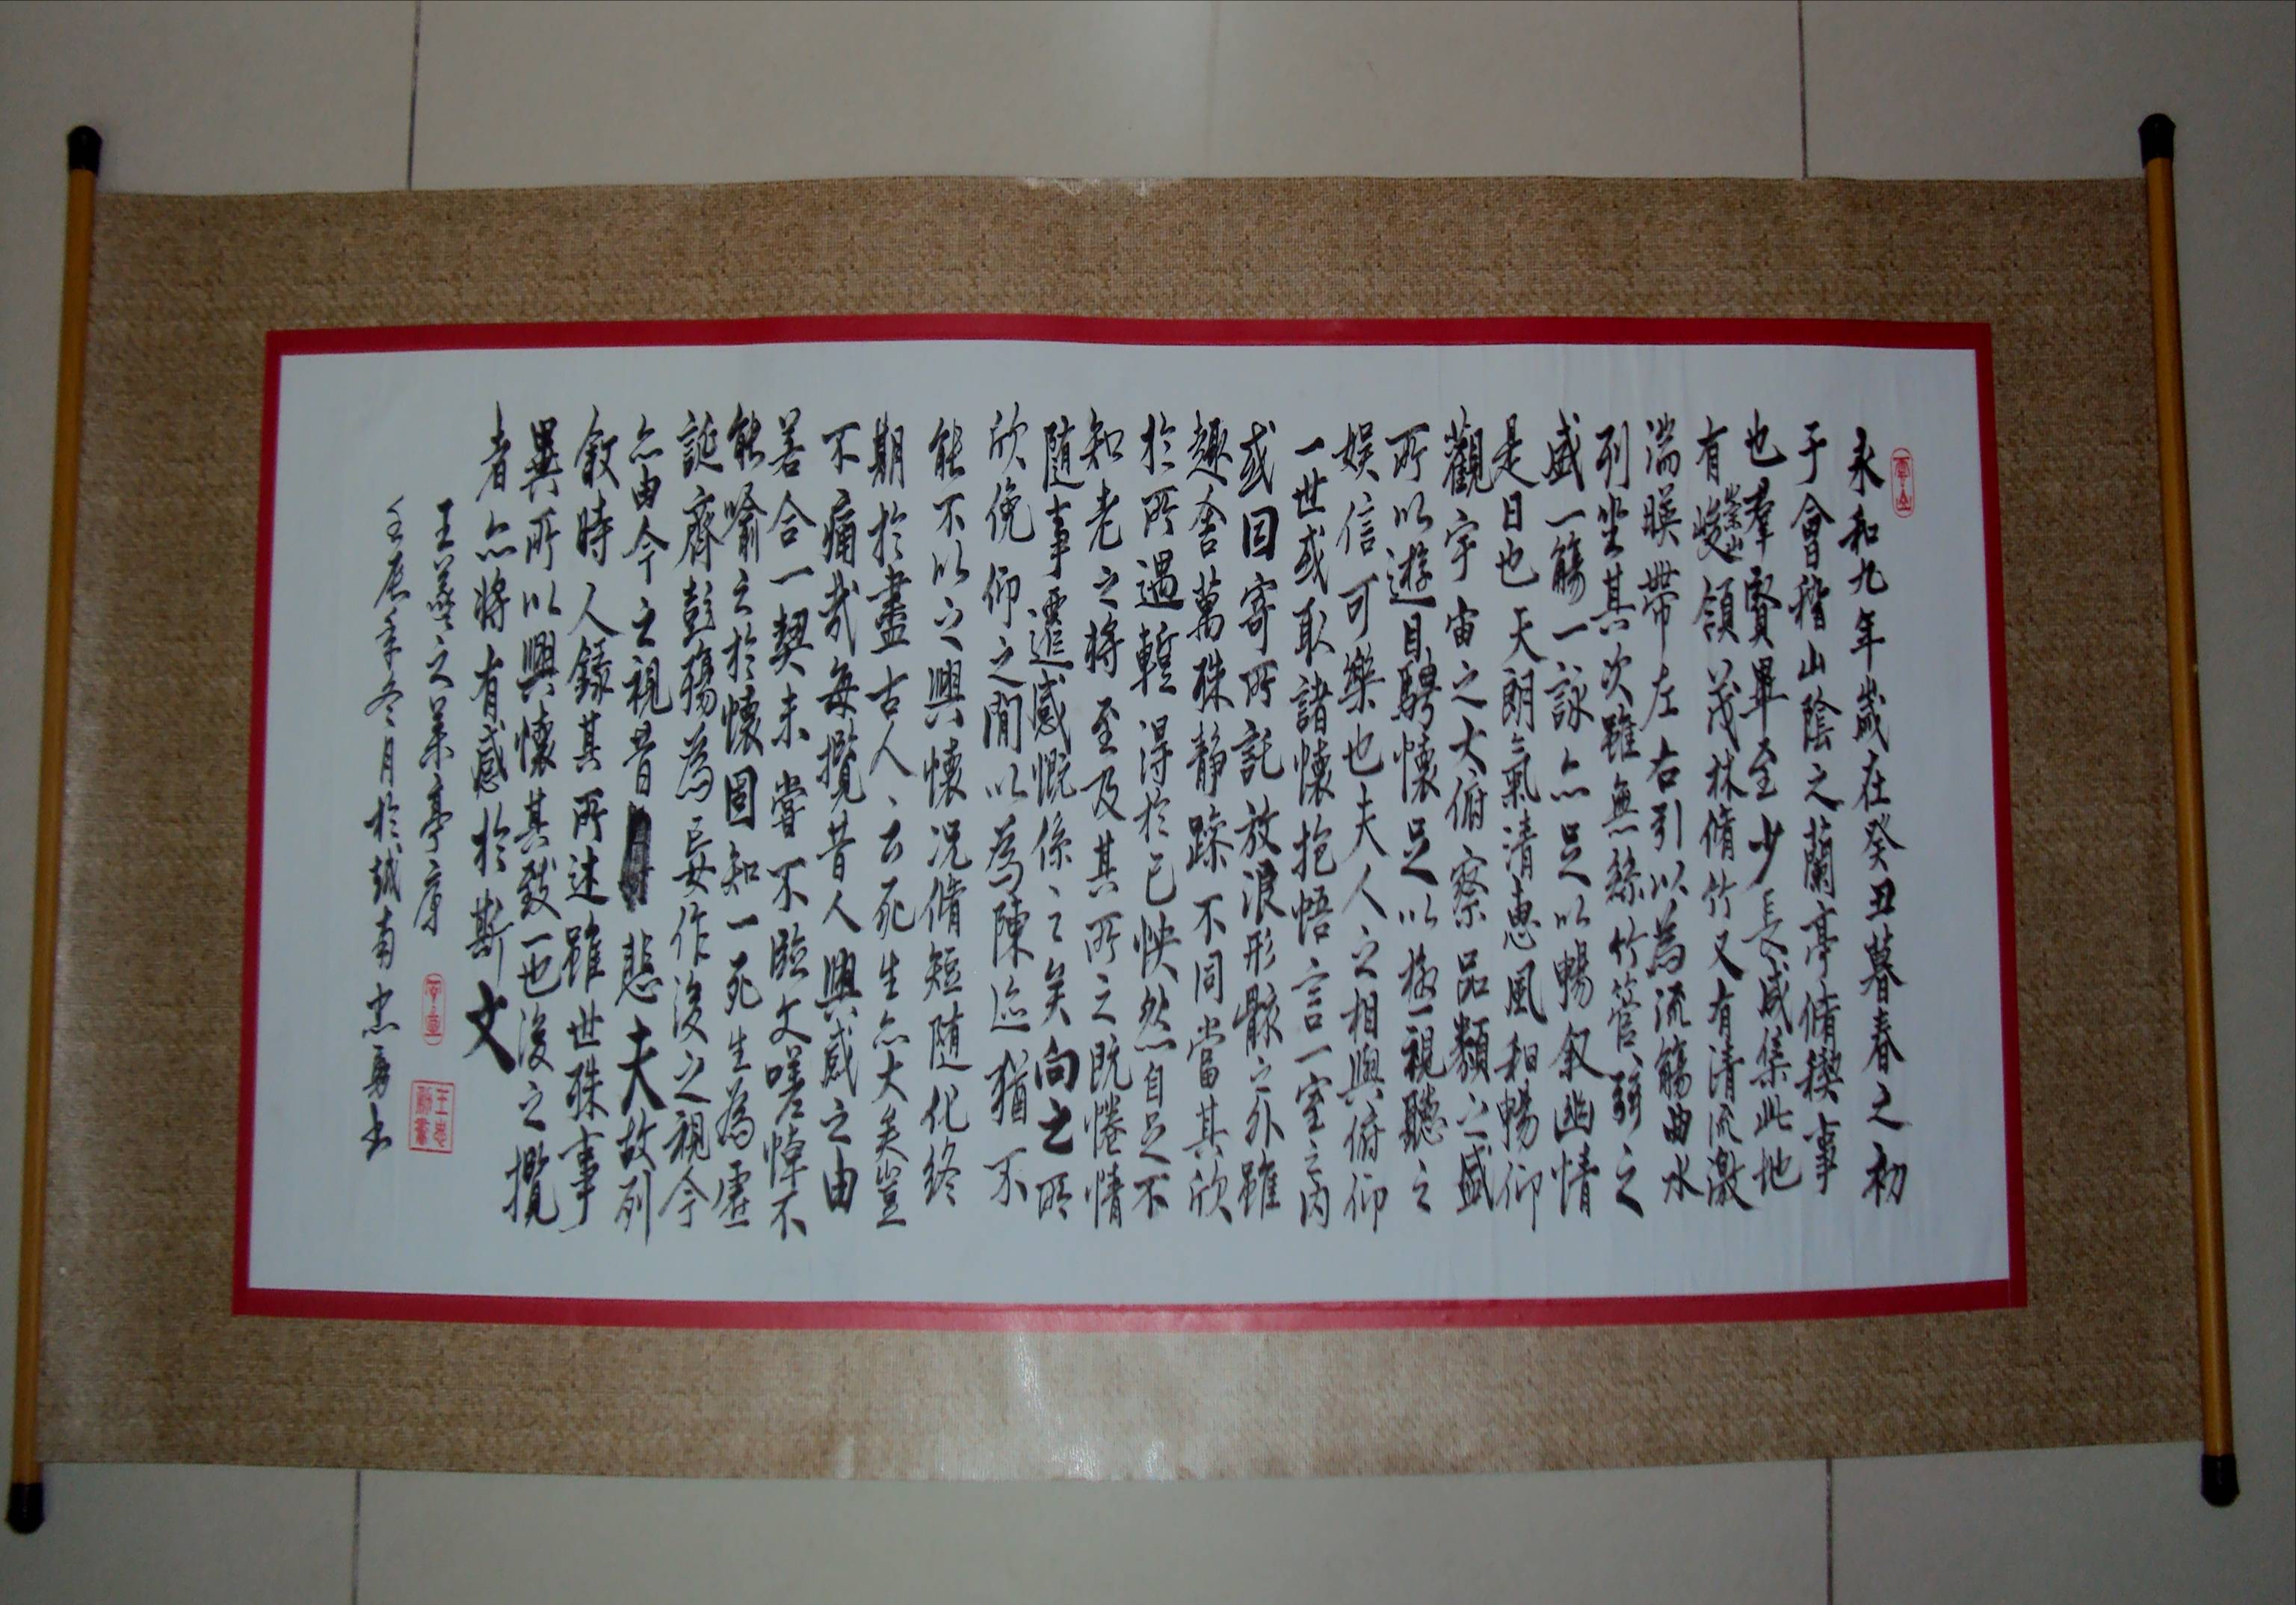 永和九年歲在癸丑暮春之初
于會稽山陰之蘭亭脩稧事
也羣賢畢至少長咸集此地
有崇山峻領茂林脩竹又有清流激
湍暎帶左右引以為流觴曲水
列坐其次雖無絲竹管弦之
盛一觴一詠亦足以暢叙幽情
是日也天朗氣清惠風和暢仰
觀宇宙之大俯察品類之盛
所以遊目騁懷足以極視聽之
娛信可樂也夫人之相與俯仰
一世或取諸懷抱悟言一室之內
或因寄所託放浪形骸之外雖
趣舍萬殊静躁不同當其欣
於所遇蹔得於己怏然自足不
知老之將至及其所之既惓情
隨事遷感慨係之矣向之所
欣俛仰之閒以為陳迹猶不
能不以之興懷況脩短隨化終
期於盡古人云死生亦大矣豈
不痛哉每攬昔人興感之由
若合一契未嘗不臨文嗟悼不
能喻之於懷固知一死生為虛
誕齊彭殤為妄作後之視今
亦由今之視昔悲夫故列
敘時人錄其所述雖世殊事
異所以興懷其致一也後之攬
者亦將有感於斯文
王羲之蘭亭序
壬辰年冬月於越南忠勇书